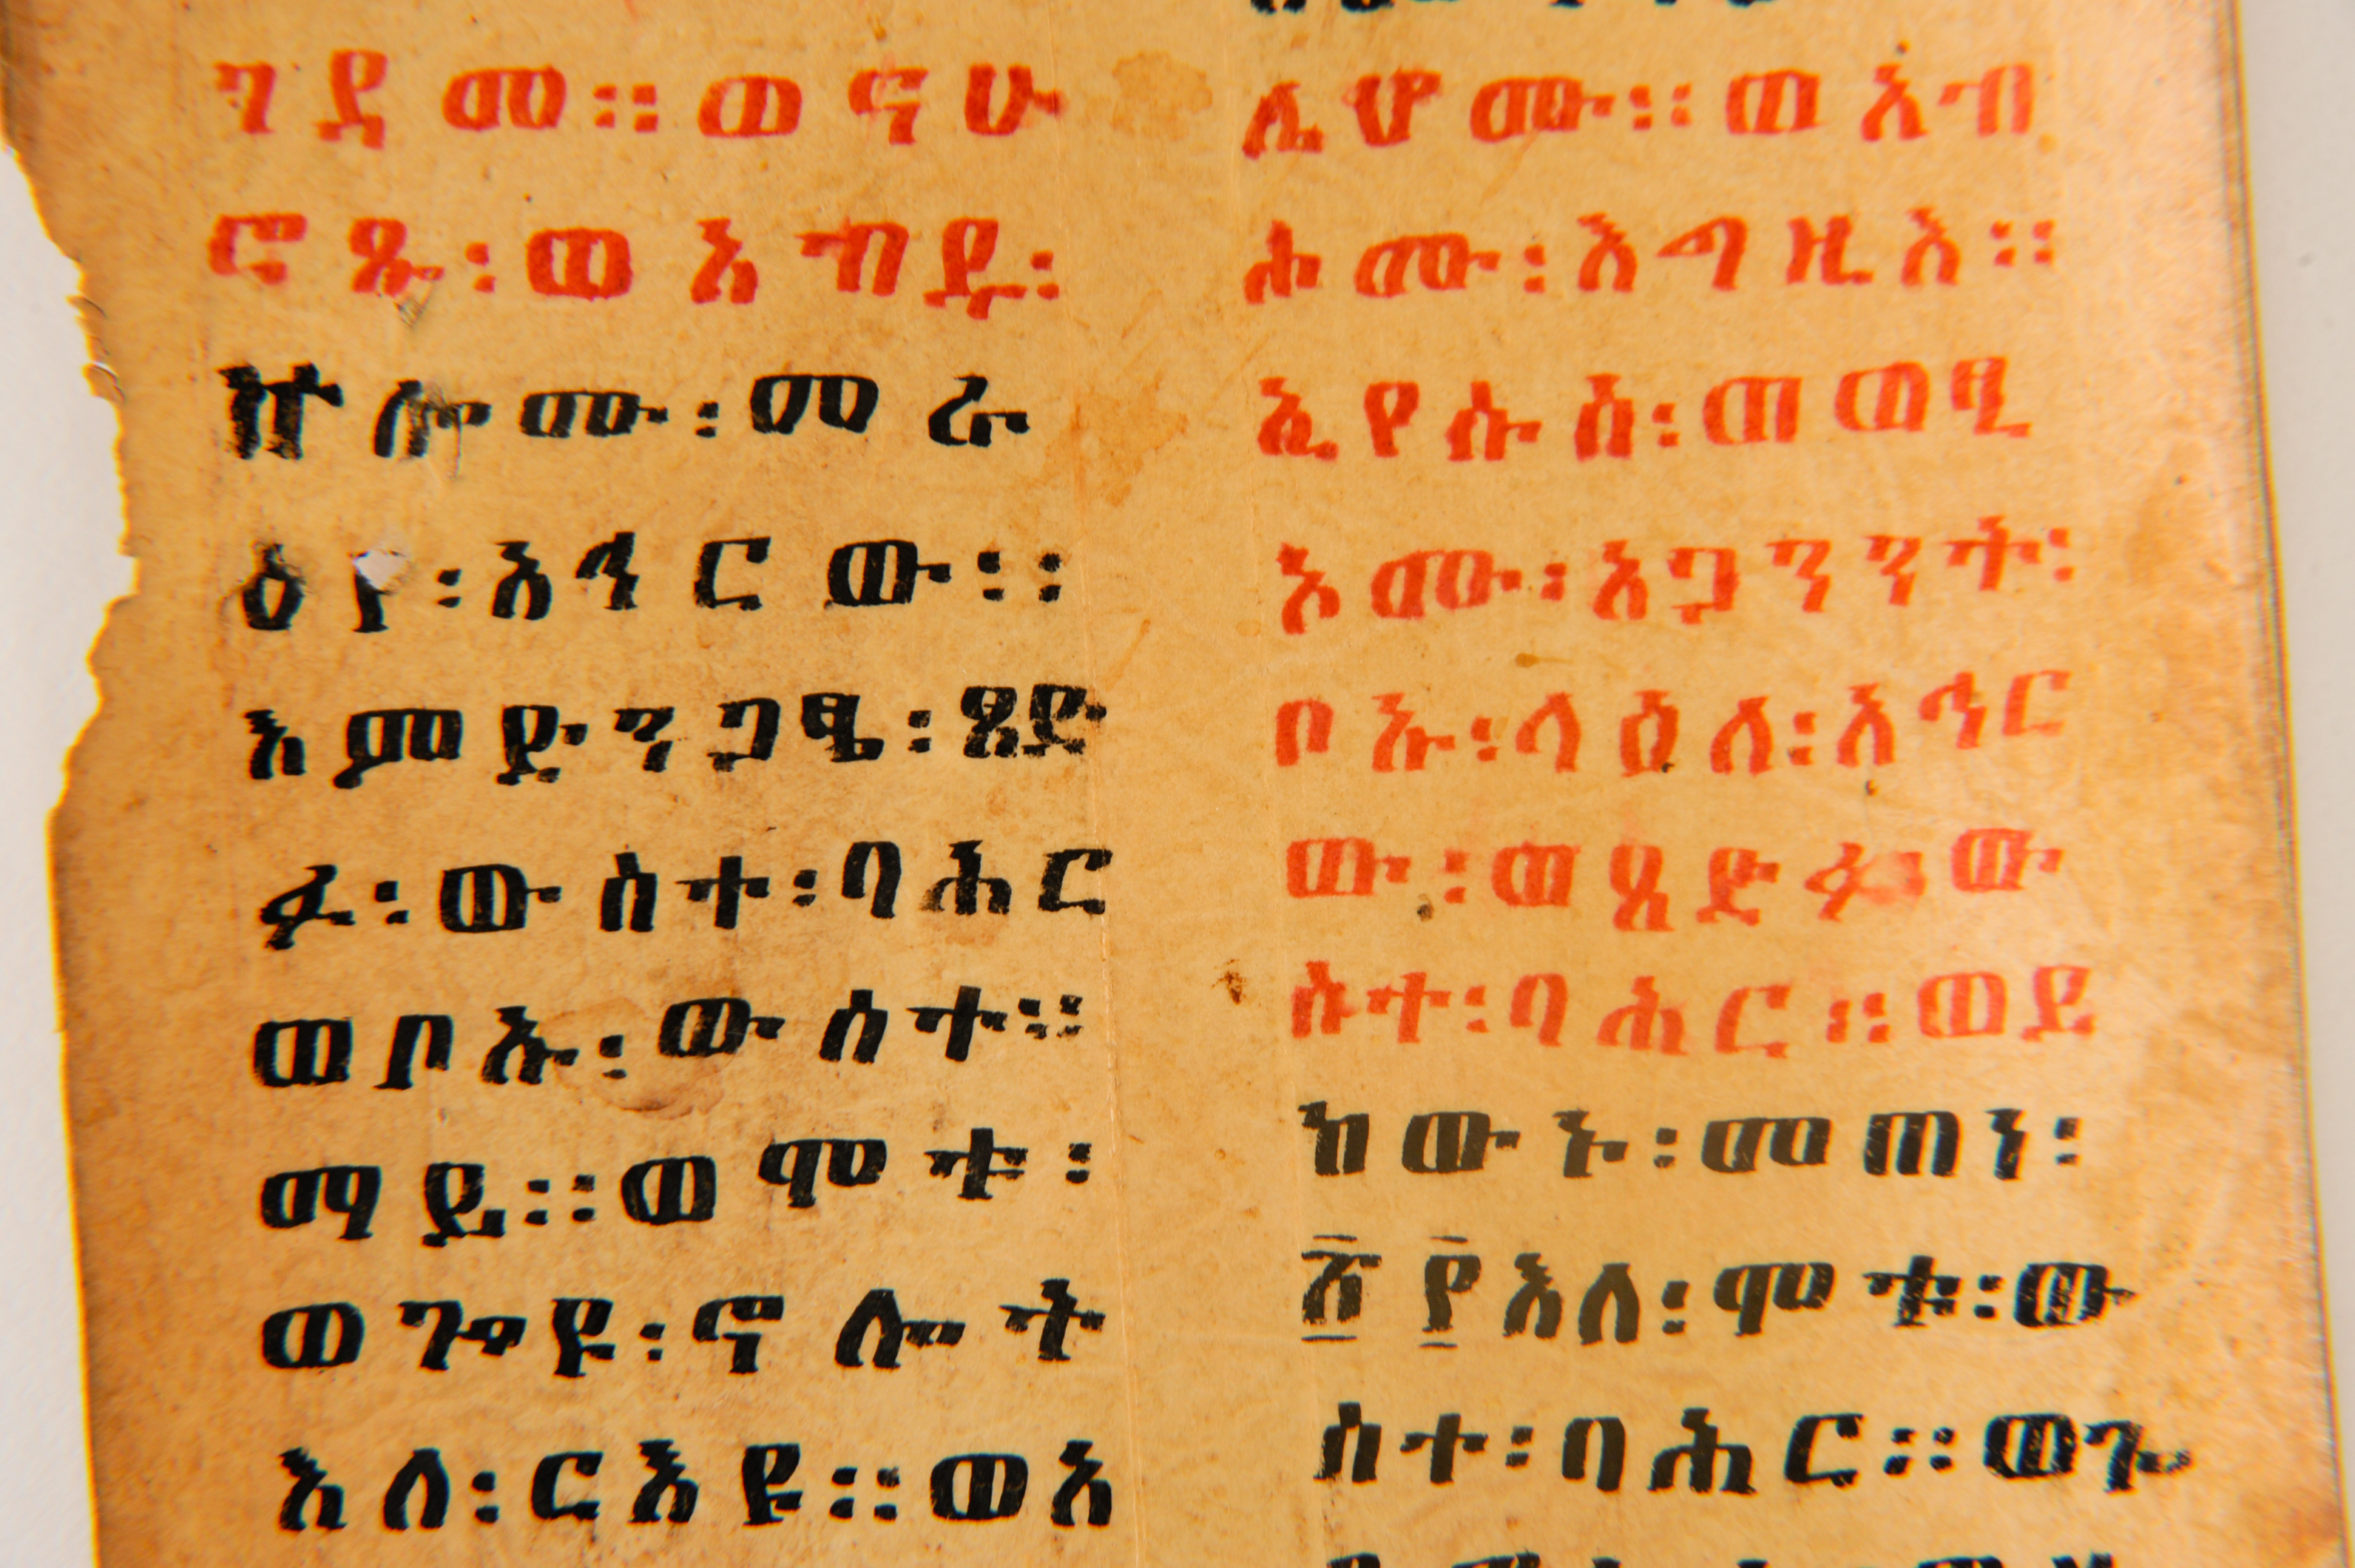 ገዳመ፡፡ወናሁ
ሮጹ፡ወአብዱ፡
ኵሎሙ፡መራ
ዕየ፡አኅርው፡፡
እምድንጋፄ፡ጸድ
ፉ፡ውስተ፡ባሕር
ወቦኡ፡ውስተ፡፡
ማይ፡፡ወሞቱ፡
ወጐዩ፡ኖሎት
እለ፡ርእዩ፡፡ወአ
ሊሆሙ፡፡ወአብ
ሖሙ፡እግዚእ፡፡
ኢየሱስ፡ወወፂ
ኦሙ፡አጋንንት፡
ቦኡ፡ላዕለ፡አኅር
ው፡ወጸድፉ፡ው
ስተ፡ባሕር፡፡ወይ
ከውኑ፡መጠነ፡
፳፻እለ፡ሞቱ፡ው
ስተ፡ባሕር፡፡ወጐ